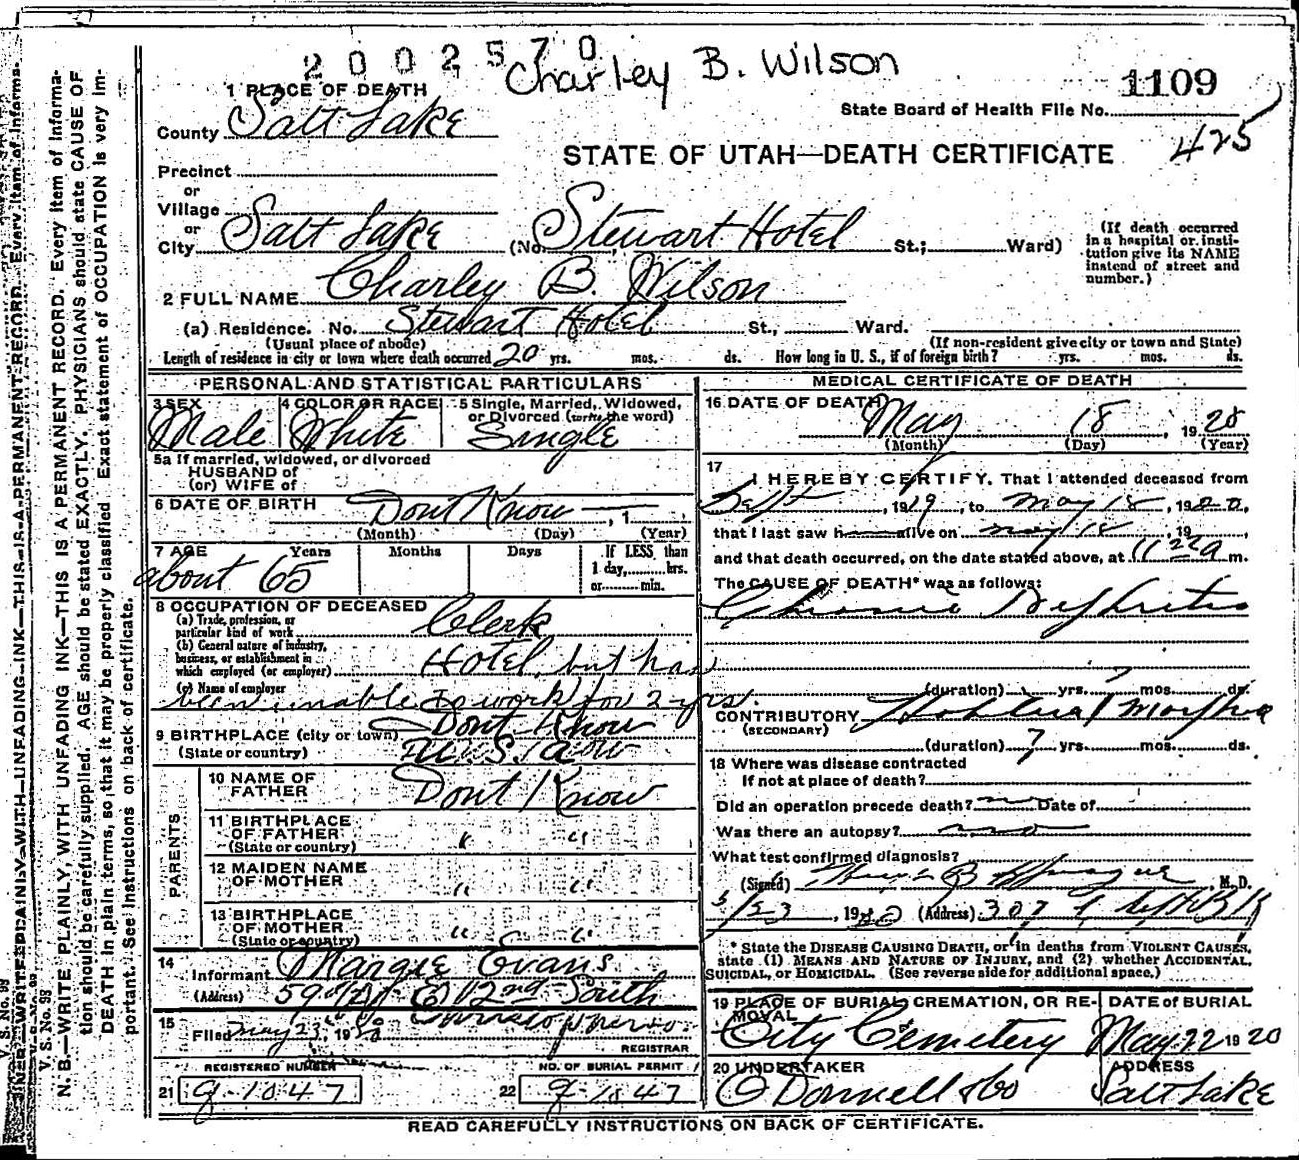 2002570
Charley B. Wilson
1109
State Board of Health File No.
425
1 PLACE OF DEATH
County Salt Lake
STATE OF UTAH—DEATH CERTIFICATE
Precinct
or
Village
or
City Salt Lake (No. Stewart Hotel St.; Ward)
(If death occurred
in a hospital or insti-
tution give its NAME
instead of street and
number.)
2 FULL NAME Charley B. Wilson
(a) Residence. No. Stewart Hotel St., Ward.
(Usual place of abode) (If non-resident give city or town and State)
Length of residence in city or town where death occurred 20 yrs. mos. ds. How long in U. S., if of foreign birth? yrs. mos. ds.
PERSONAL AND STATISTICAL PARTICULARS
3 SEX 4 COLOR OR RACE 5 Single, Married, Widowed,
or Divorced (write the word)
Male White Single
5a If married, widowed, or divorced
HUSBAND of
(or) WIFE of
6 DATE OF BIRTH Dont Know , 1
(Month) (Day) (Year)
7 AGE Years Months Days If LESS than
1 day, hrs.
or min.
about 65
8 OCCUPATION OF DECEASED
(a) Trade, profession, or
particular kind of work Clerk
(b) General nature of industry,
business, or establishment in
which employed (or employer) Hotel, but has
(c) Name of employer
been unable to work for 2 yrs.
9 BIRTHPLACE (city or town) Dont Know
(State or country) U.S.a
PARENTS
10 NAME OF
FATHER Dont Know
11 BIRTHPLACE
OF FATHER " "
(State or country)
12 MAIDEN NAME
OF MOTHER " "
13 BIRTHPLACE
OF MOTHER " "
(State or country)
14
Informant Margie Evans
(Address) E 12nd South
15
Filed May 23, 19
REGISTRAR
REGISTERED NUMBER NO. OF BURIAL PERMIT
21 g-1047 22 g-1047
MEDICAL CERTIFICATE OF DEATH
16 DATE OF DEATH
May 18, 1920
(Month) (Day) (Year)
17
I HEREBY CERTIFY, That I attended deceased from
Sept, 1919, to May 18, 1920,
that I last saw h alive on May 18, 19
and that death occurred, on the date stated above, at 11 m.
The CAUSE OF DEATH* was as follows:
Chronic Nephritis
(duration) yrs. mos. ds.
CONTRIBUTORY
(SECONDARY)
(duration) 7 yrs. mos. ds.
18 Where was disease contracted
If not at place of death?
Did an operation precede death? no Date of
Was there an autopsy? no
What test confirmed diagnosis?
(Signed) B Sprague, M. D.
5/23, 1920 (Address) 307
* State the DISEASE CAUSING DEATH, or in deaths from VIOLENT CAUSES,
state (1) MEANS AND NATURE OF INJURY, and (2) whether ACCIDENTAL,
SUICIDAL, or HOMICIDAL. (See reverse side for additional space.)
19 PLACE OF BURIAL, CREMATION, OR RE-
MOVAL DATE OF BURIAL
City Cemetery May 22 1920
20 UNDERTAKER ADDRESS
O Donnell & Co Salt Lake
READ CAREFULLY INSTRUCTIONS ON BACK OF CERTIFICATE.
V. S. No. 98
N. B.—WRITE PLAINLY, WITH UNFADING INK—THIS IS A PERMANENT RECORD. Every item of informa-
tion should be carefully supplied. AGE should be stated EXACTLY. PHYSICIANS should state CAUSE OF
DEATH in plain terms, so that it may be properly classified. Exact statement of OCCUPATION is very im-
portant. See instructions on back of certificate.